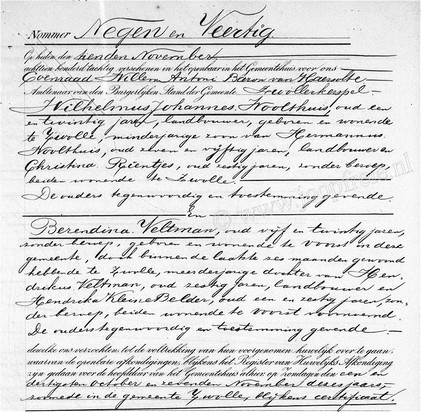 Nommer Negen en Veertig
Op heden den tienden November
achttien honderd tachtig, verscheen in het openbaar in het Gemeentehuis voor ons
Coenraad Willem Antoni Baron van Haersolte
Ambtenaar van den Burgerlijken Stand der Gemeente Zwollerkerspel
Wilhelmus Johannes Noolthuis, oud een
en twintig jaren, landbouwer, geboren en wonende
te Zwolle, minderjarige zoon van Hermannus
Noolthuis, oud zeven en vijftig jaren, landbouwer en
Christina Rientjes, oud zestig jaren, zonder beroep,
beiden wonende te Zwolle.
De ouders tegenwoordig en toestemming gevende.
En
Berendina Veltman, oud vijf en twintig jaren,
zonder beroep, geboren en wonende te Voorst in deze
gemeente, doch binnen de laatste zes maanden gewoond
hebbende te Zwolle, meerderjarige dochter van Hen-
drikus Veltman, oud zestig jaren, landbouwer en
Hendrika Kleine Belder, oud een en zestig jaren, zon-
der beroep, beiden wonende te Voorst voornoemd.
De ouders tegenwoordig en toestemming gevende
dewelke ons verzochten tot de voltrekking van hun voorgenomen huwelijk over te gaan:
waarvan de openbare afkondigingen, blijkens het Register van Huwelijks Afkondiging
zijn gedaan voor de hoofddeur van het Gemeentehuis alhier, op Zondagen den een en
dertigsten October en zevenden November dezes jaars,
mede in de gemeente Zwolle, blijkens certificaat.